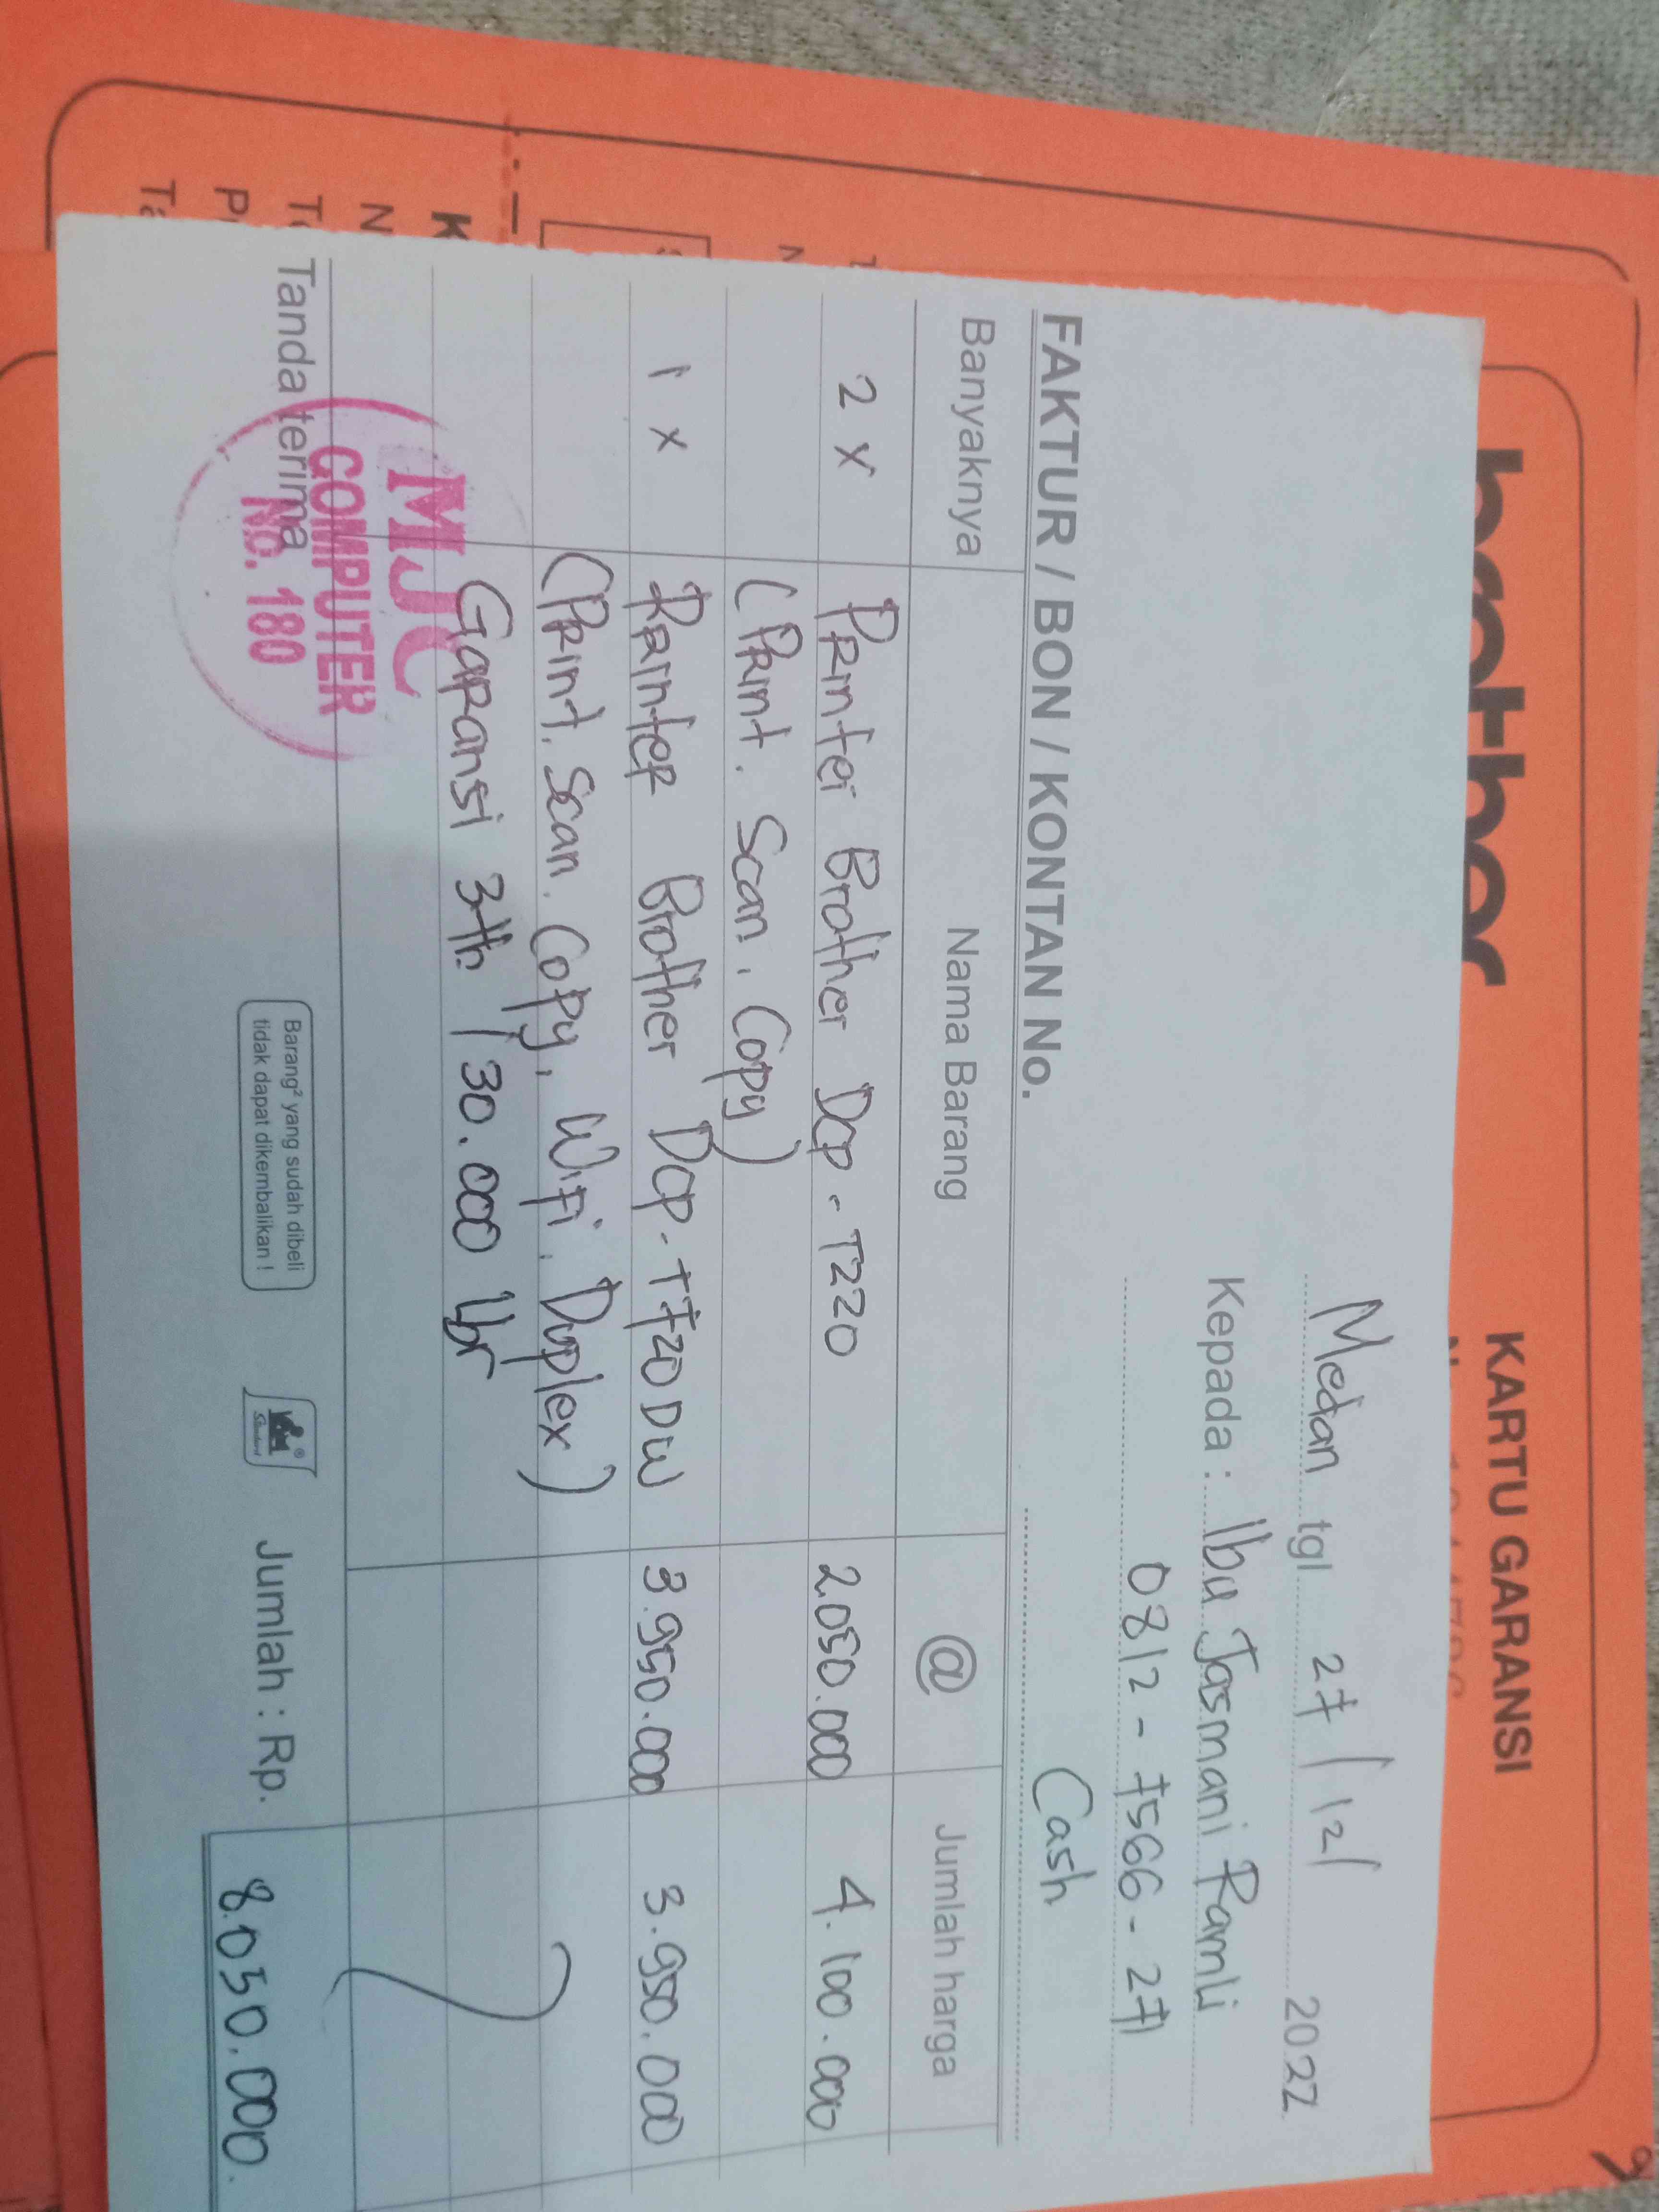 brother
KARTU GARANSI
Medan tgl 27/12/ 2022
Kepada : Ibu Jasmani Ramli
0812-7566-271
Cash
FAKTUR / BON / KONTAN No.
Banyaknya Nama Barang @ Jumlah harga
2 x Printer Brother Dcp-T220 2.050.000 4.100.000
(Print. Scan. Copy)
1 x Printer Brother DCP-T720DW 3.950.000 3.950.000
(Print. Scan. Copy, Wifi. Duplex)
Garansi 3th / 30.000 lbr
Tanda terima
MJC
COMPUTER
No. 180
Barang² yang sudah dibeli
tidak dapat dikembalikan !
Standard
Jumlah : Rp. 8.050.000.